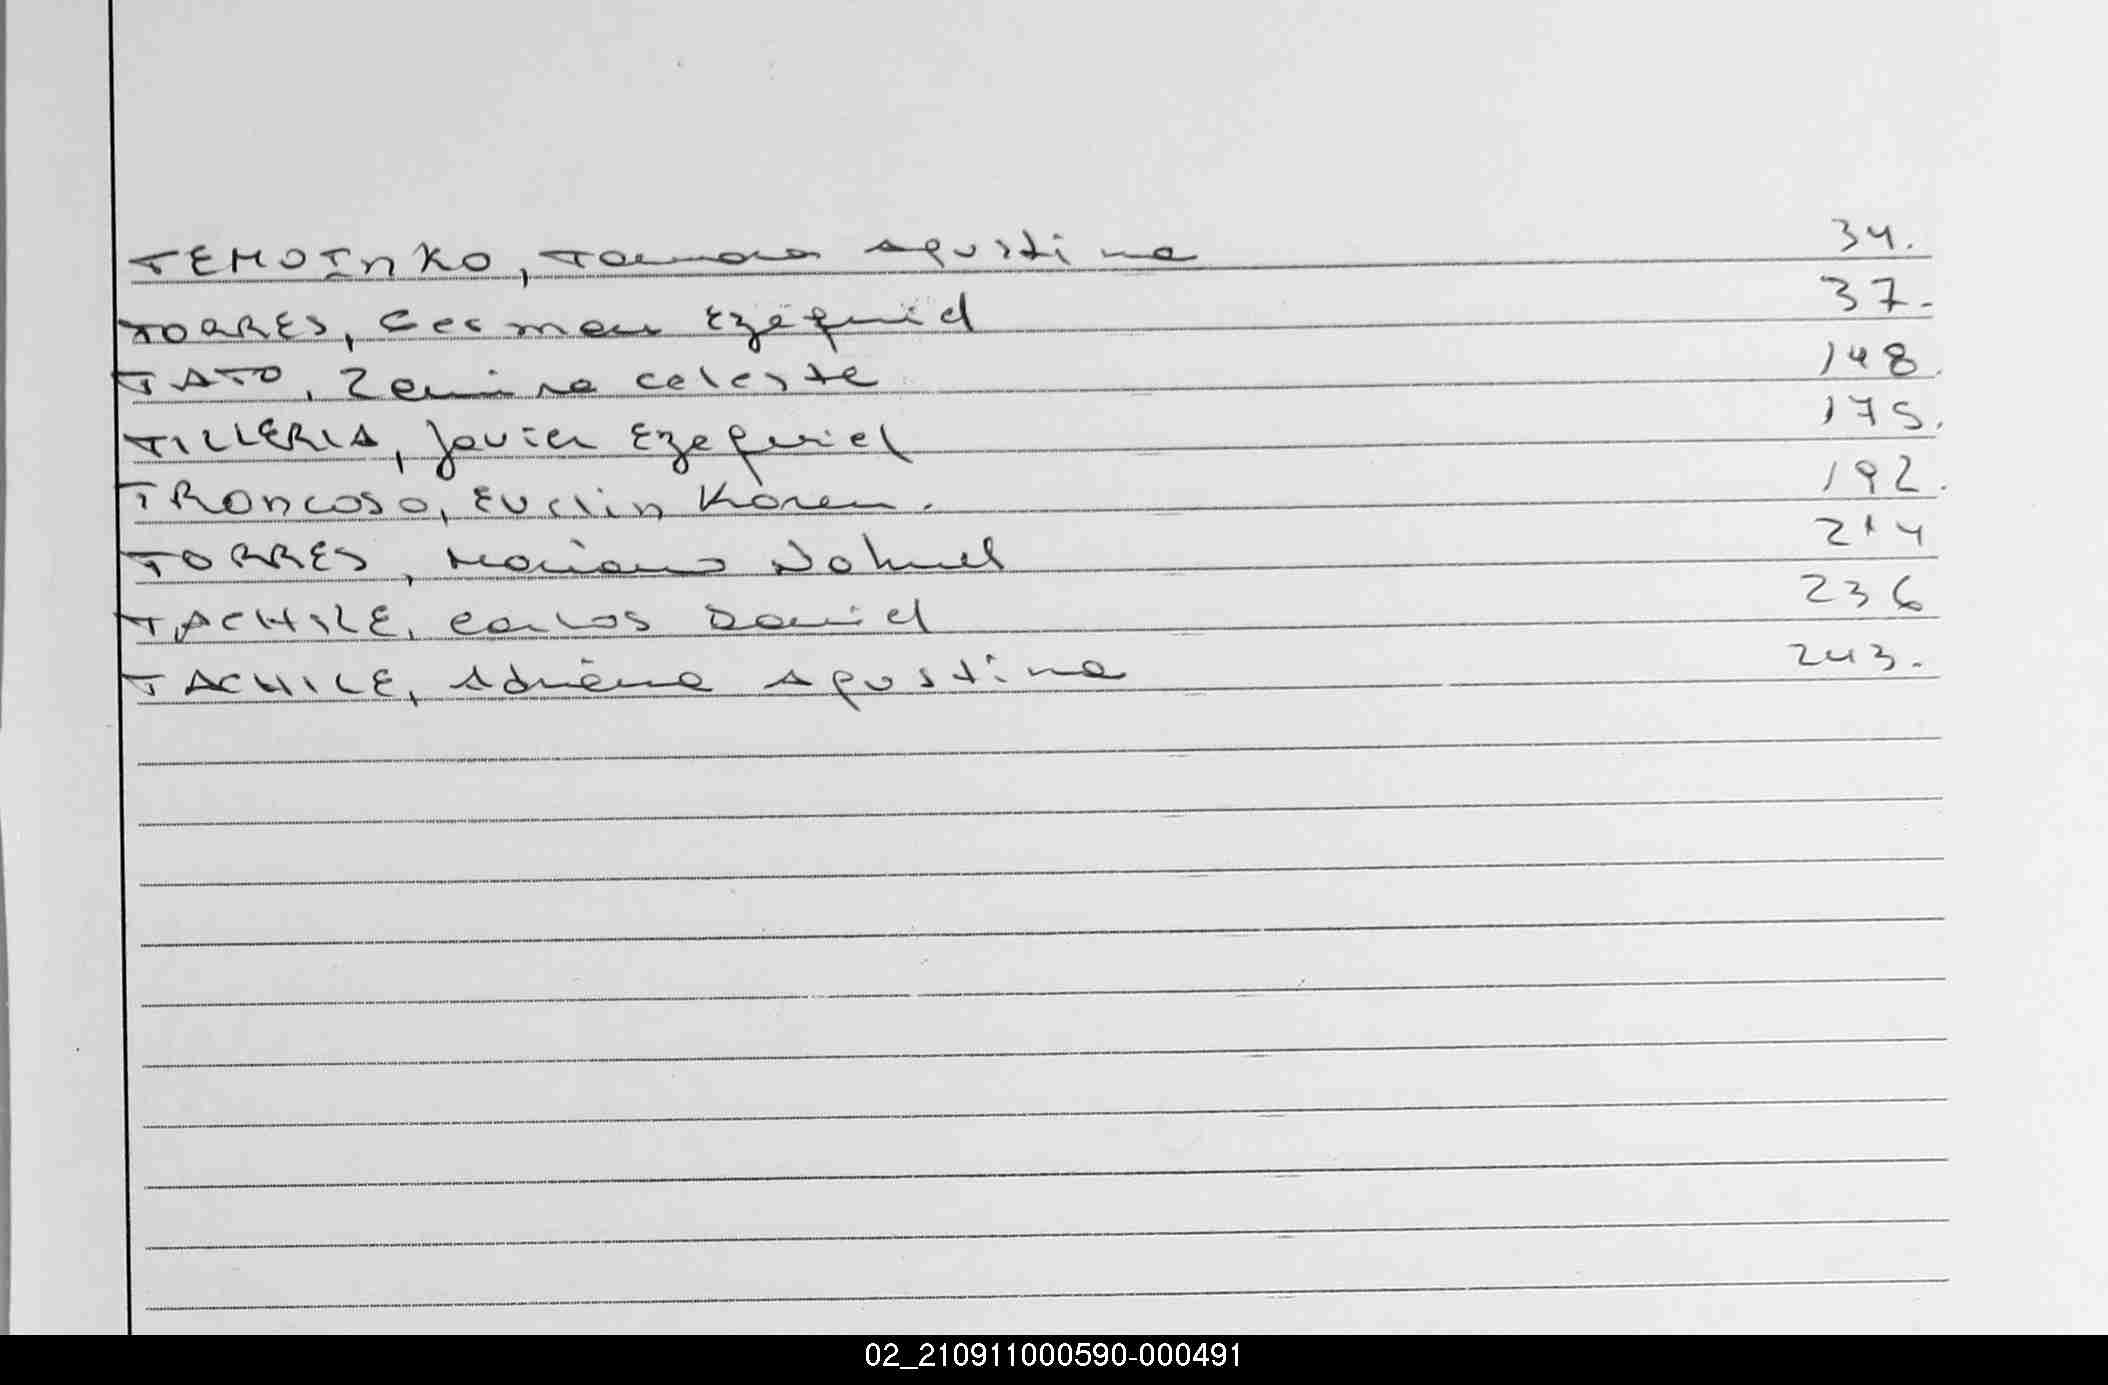 TEMOINKO, Tamara Agustina 34.
TORRES, German Ezequiel 37.
TATO, Zamira Celeste 148.
TILLERIA, Javier Ezequiel 175.
TRONCOSO, Evelin Karen. 192.
TORRES, Mariano Nahuel 214
TACHILE, Carlos Daniel 236
TACHILE, Adriana Agustina 243.
02_210911000590-000491